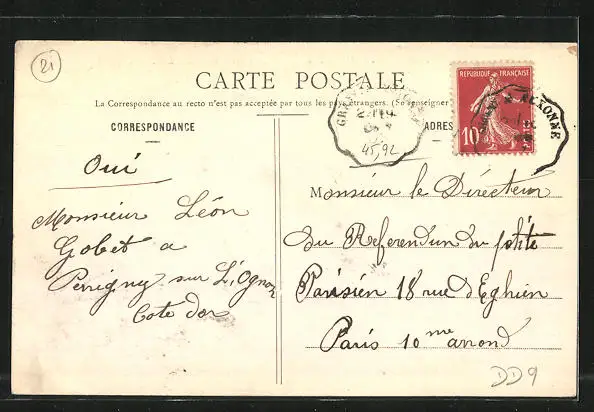 21
CARTE POSTALE
La Correspondance au recto n'est pas acceptée par tous les pays étrangers. (Se renseigner
CORRESPONDANCE
ADRES
RÉPUBLIQUE FRANÇAISE
10
AUXONNE
GR
45,92
Oui
Monsieur Léon
Gobet a
Perrigny sur L'Ognon
Cote dor
Monsieur le Directeur
du Referendun du petite
Parisien 18 rue d'Eghien
Paris 10me arrond
DD9